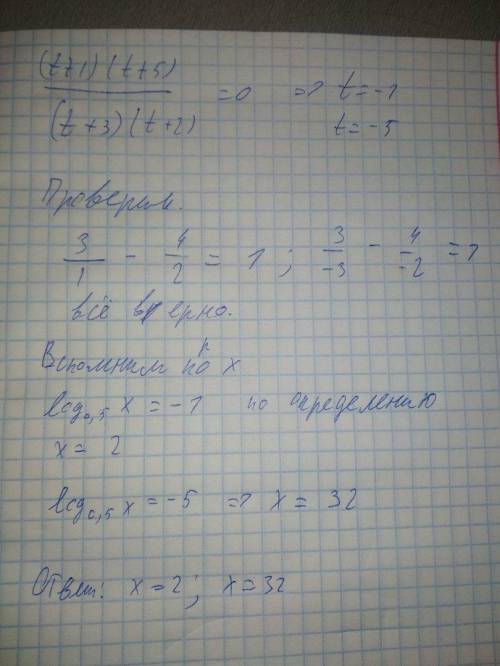 (t+1)(t+5)
(t+3)(t+2) =0 => t=-1
t=-5
Проверим.
3/1 - 4/2 = 1 ; 3/-3 - 4/-2 = 1
всё верно.
Вспомним пр х
log0,5 x = -1 по определению
x = 2
log0,5 x = -5 => x = 32
Ответ: x=2; x=32